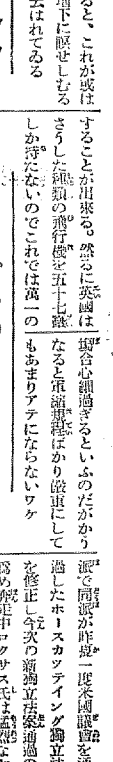 ると、これが或は
増下に瞑せしむる
去はれてゐる
することが出來る。然るに英國は
さうした種類の飛行機を五十七臺
しか持たないのでこれでは萬一の
場合心細過ぎるといふのだがかう
なると軍縮規程ばかり嚴重にして
もあまりアテにならないワケ
派で同派が昨夜一度米國議會を通
過したホースカツテイング獨立法
を修正し今次の新獨立法案通過の
中ロクサス氏は猛烈な